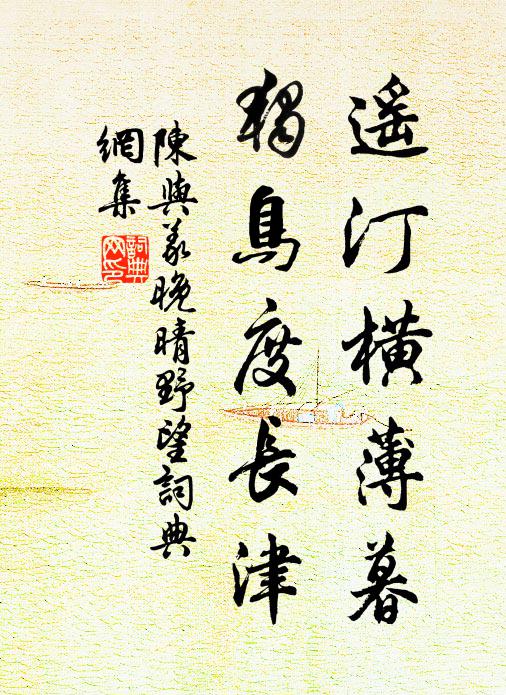 遥汀橫薄暮
獨鳥度長津
陳與義晚晴野望詞典
網集
詞典网印